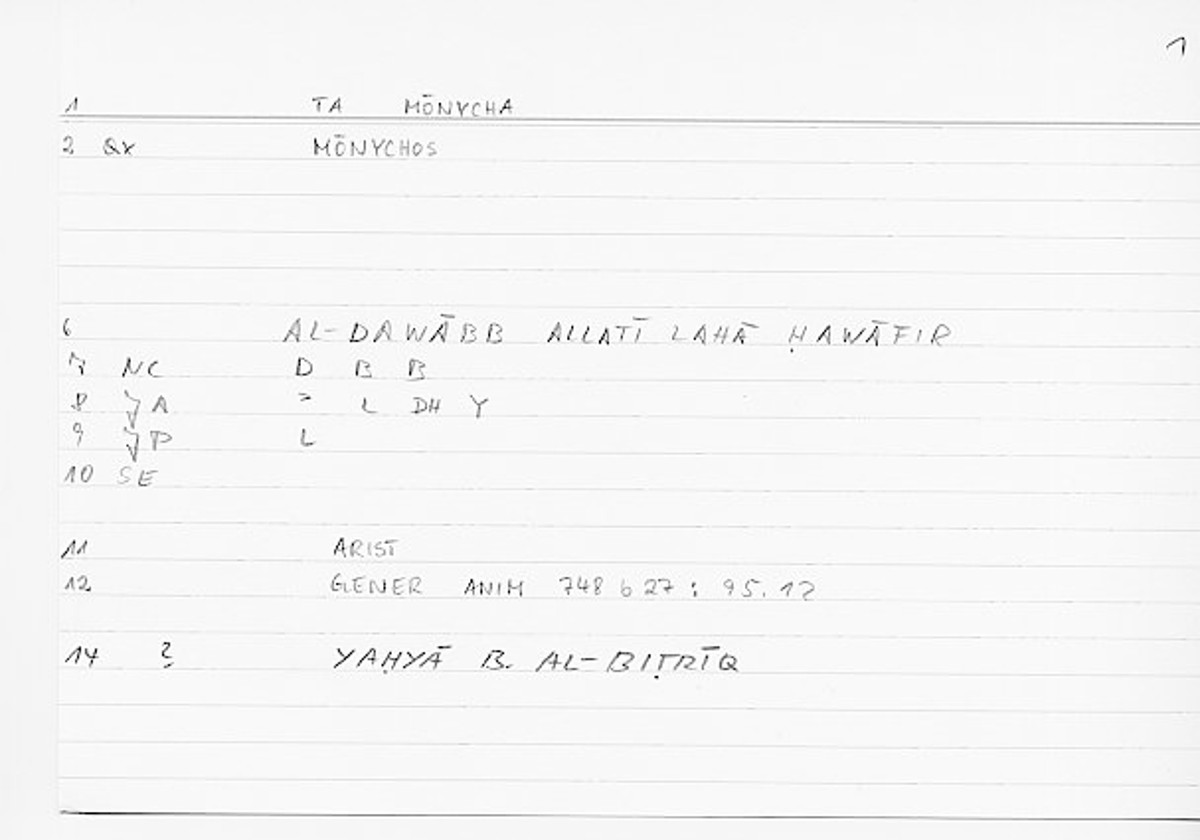 1
1 TA MŌNYCHA
2 Qx MŌNYCHOS
6 AL-DAWĀBB ALLATĪ LAHĀ ḤAWĀFIR
7 NC D B B
8 A = L DH Y
9 P L
10 SE
11 ARIST
12 GENER ANIM 748 b 27 : 95.12
14 ? YAḤYĀ B. AL-BIṬRĪQ